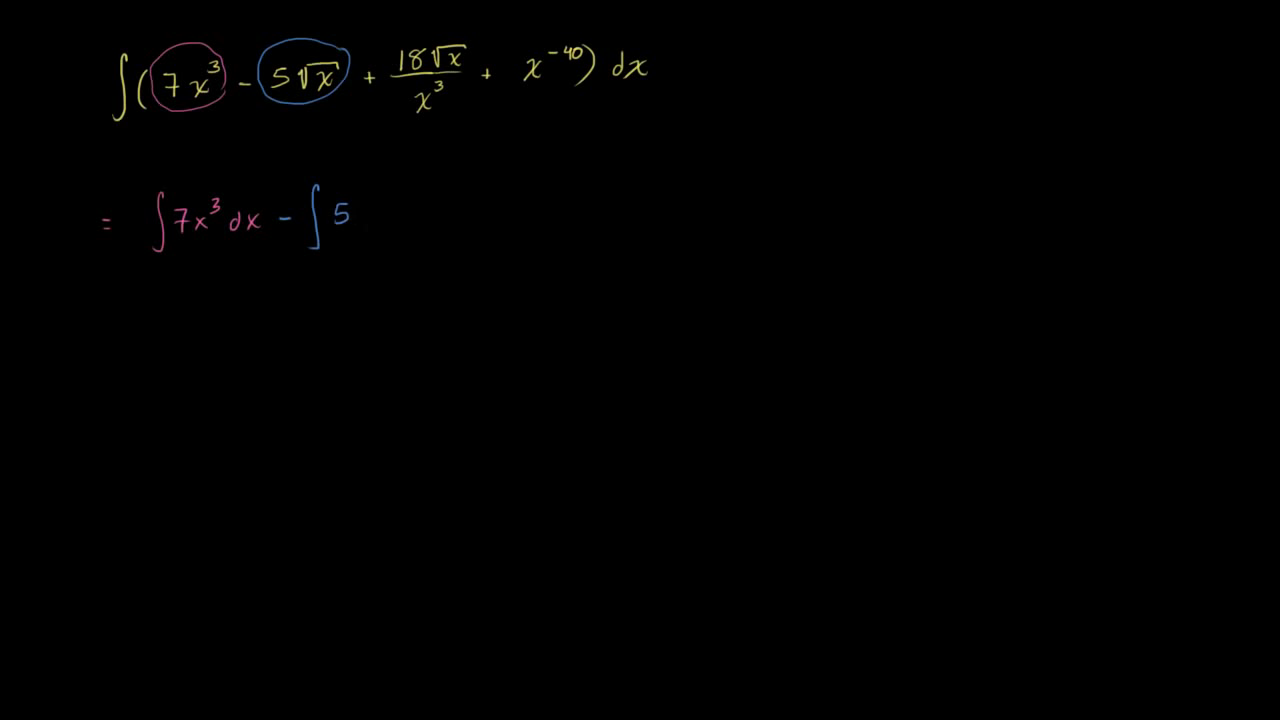 ∫(7x³ - 5√x + 18√x/x³ + x⁻⁴⁰) dx
= ∫7x³ dx - ∫5